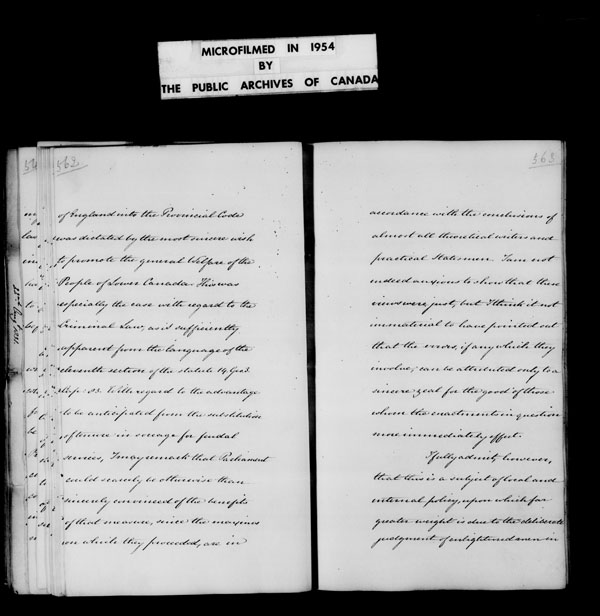 MICROFILMED IN 1954
BY
THE PUBLIC ARCHIVES OF CANADA
562
of England into the Provincial Code
was dictated by the most sincere wish
to promote the general Welfare of the
People of Lower Canada. This was
especially the case with regard to the
Criminal Law, as is sufficiently
apparent from the language of the
eleventh section of the statute 14 Geo 3
Cap. 83. With regard to the advantage
to be anticipated from the substitution
of tenure in soccage for feudal
services, I may remark that Parliament
could scarcely be otherwise than
sincerely convinced of the benefits
of that measure, since the maxims
on which they proceeded, are in
563
accordance with the conclusions of
almost all theoretical writers and
practical Statesmen. I am not
indeed anxious to show that these
views were just, but I think it not
immaterial to have pointed out
that the errors, if any which they
involve, can be attributed only to a
sincere zeal for the good of those
whom the enactments in question
more immediately affect.
I fully admit, however,
that this is a subject of local and
internal policy, upon which far
greater weight is due to the deliberate
judgment of enlightened men in